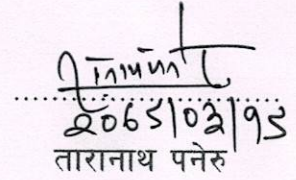 २०६५|०३|१५
तारानाथ पनेरु